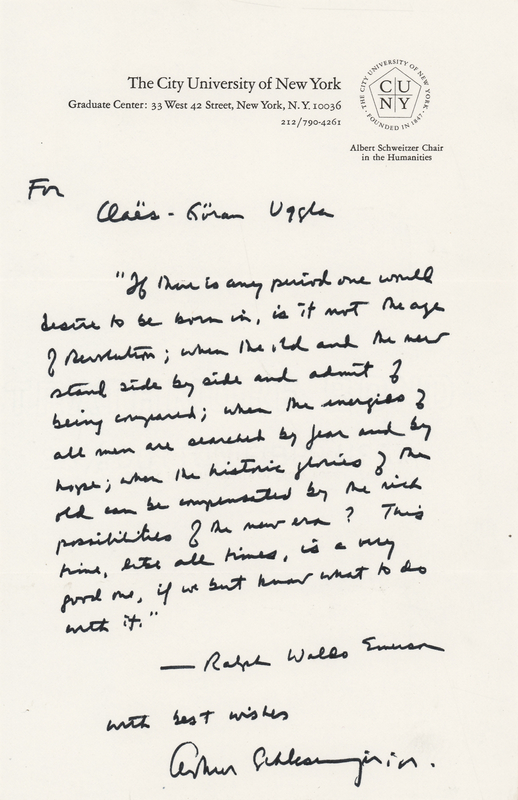 The City University of New York
Graduate Center: 33 West 42 Street, New York, N.Y. 10036
212/790-4261
THE CITY UNIVERSITY OF NEW YORK · FOUNDED IN 1847 ·
CU
NY
Albert Schweitzer Chair
in the Humanities
For
Claës-Göran Uggla
"If there is any period one would
desire to be born in, is it not the age
of Revolution; when the old and the new
stand side by side and admit of
being compared; when the energies of
all men are searched by fear and by
hope; when the historic glories of the
old can be compensated by the rich
possibilities of the new era? This
time, like all times, is a very
good one, if we but know what to do
with it."
— Ralph Waldo Emerson
with best wishes
Arthur Schlesinger jr.